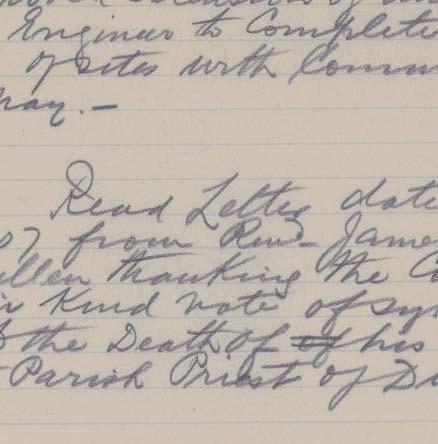 Engineer to Complete
of sites with Comm
May. —
Read Letter date
07 from Revd. Jame
ullen thanking the Co
ir Kind note of sy
the Death of of his
Parish Priest of D